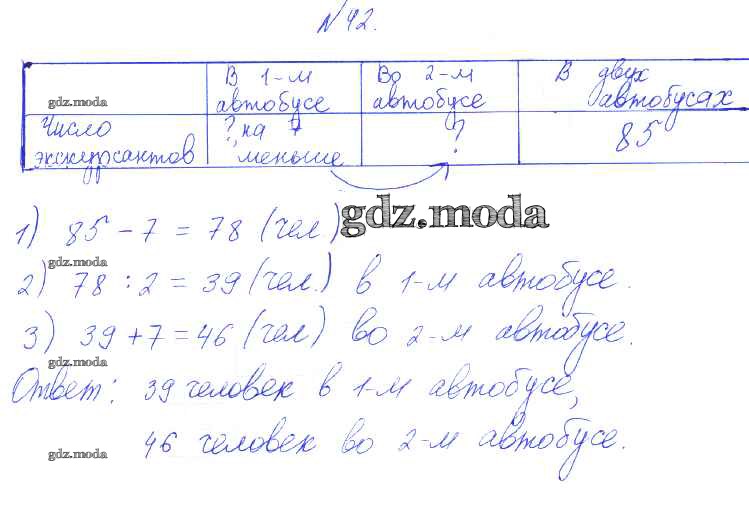 №42.
В 1-м Во 2-м В двух
gdz.moda автобусе автобусе автобусах
Число ?, на 7 ? 85
экскурсантов меньше
1) 85 - 7 = 78 (чел) gdz.moda
gdz.moda
2) 78 : 2 = 39 (чел.) в 1-м автобусе.
3) 39 + 7 = 46 (чел) во 2-м автобусе.
gdz.moda
Ответ: 39 человек в 1-м автобусе,
46 человек во 2-м автобусе.
gdz.moda